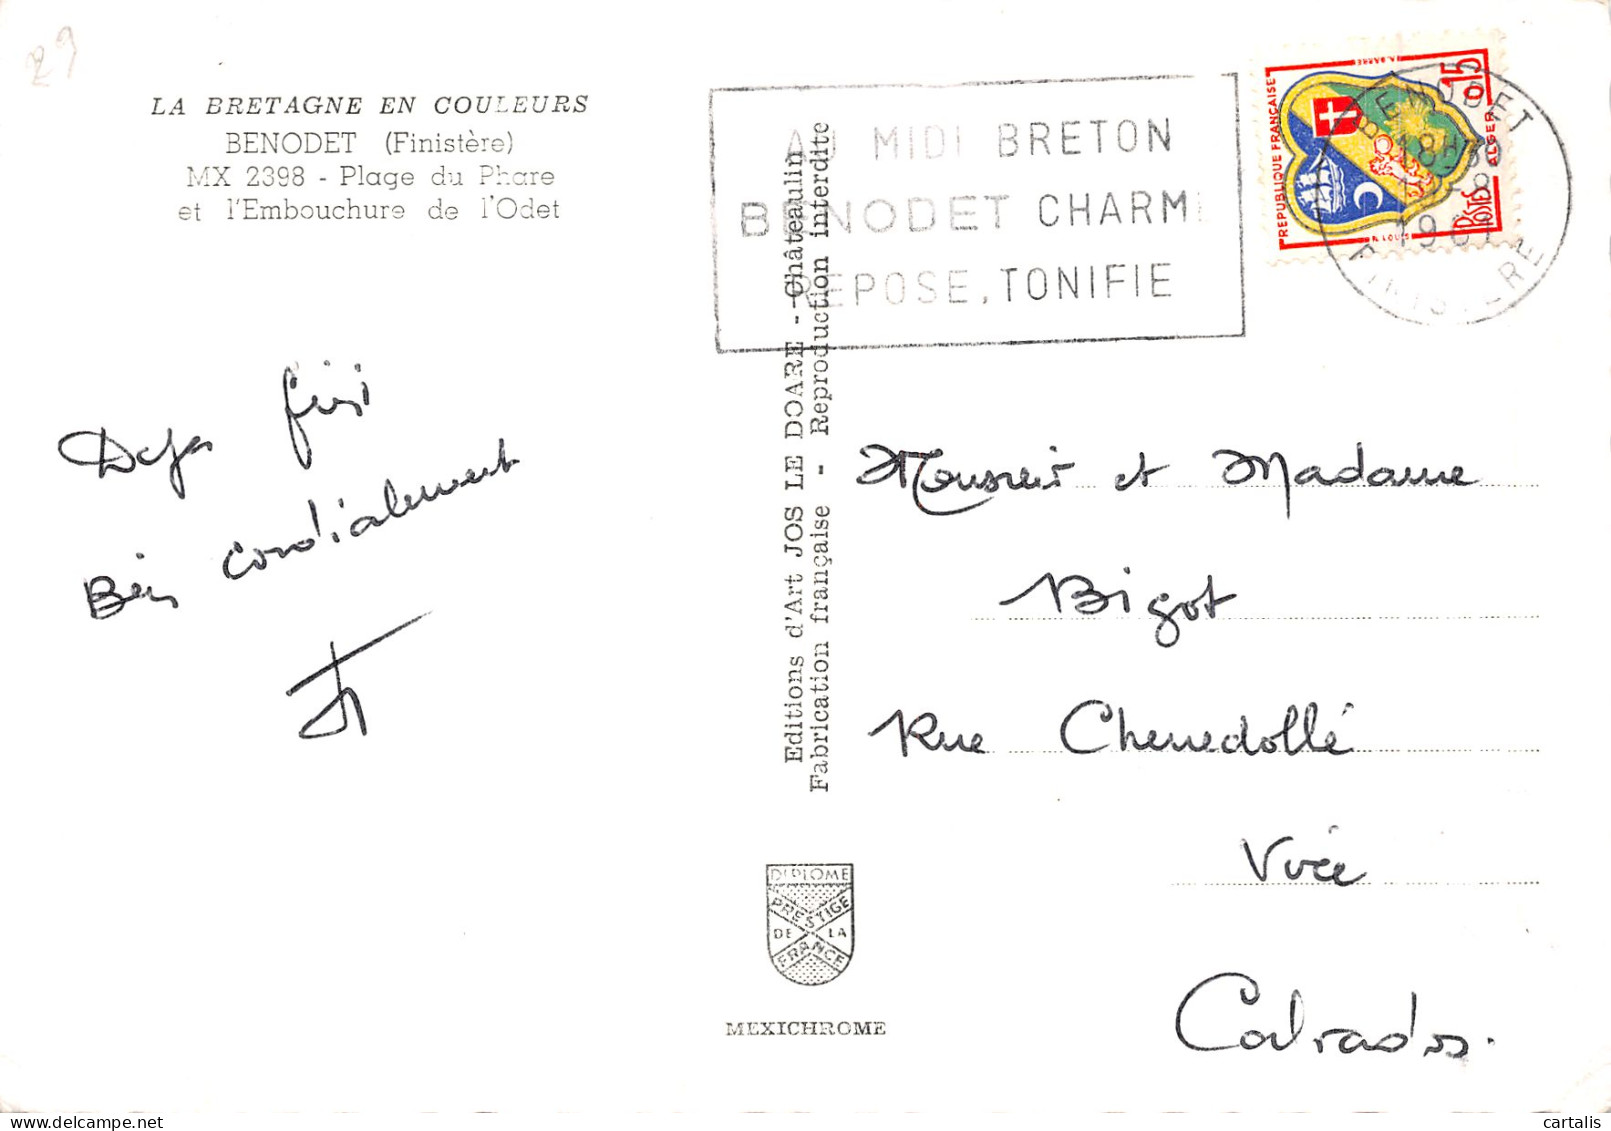 29
LA BRETAGNE EN COULEURS
BENODET (Finistère)
MX 2398 - Plage du Phare
et l'Embouchure de l'Odet
AU MIDI BRETON
BENODET CHARME
REPOSE, TONIFIE
REPUBLIQUE FRANÇAISE
0,15
POSTES
ALGER
BENODET
18H30
1961
FINISTERE
Deja fini
Bien cordialement
Editions d'Art JOS LE DOARE - Châteaulin
Fabrication française - Reproduction interdite
Monsieur et Madame
Bigot
Rue Chenedollé
Virée
Calvados.
DIPLOME
PRESTIGE
DE LA
FRANCE
MEXICHROME
cartalis